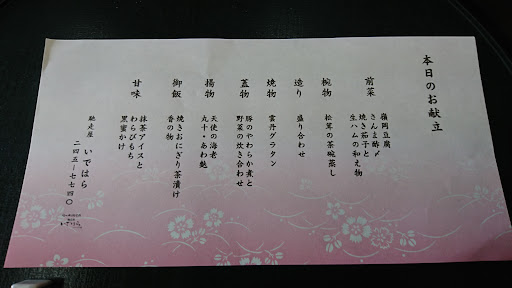 本日のお献立
前菜
嶺岡豆腐
さんま酢〆
焼き茄子と
生ハムの和え物
椀物
松茸の茶碗蒸し
造り
盛り合わせ
焼物
雲丹グラタン
蓋物
豚のやわらか煮と
野菜の炊き合わせ
揚物
天使の海老
丸十・あわ麩
御飯
焼きおにぎり茶漬け
香の物
甘味
抹茶アイスと
わらびもち
黒蜜かけ
馳走屋 いではら
二四五-七七四〇
いではら